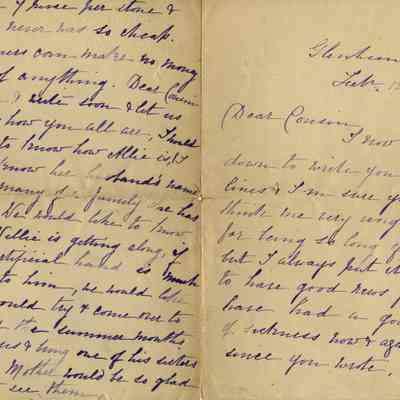 per stone &
never was so cheap.
can make no money
of anything. Dear Cousin
write soon & let us
how you all are, I would
to know how Allie is, I
know her husband's name
many of a family she has
We would like to know
Willie is getting along, if
artificial hand is much
to him, we would like
would try & come over to
the summer months
us & bring one of his sisters
Mother would be so glad
see them
Feb.
Dear Cousin
I now
down to write you
lines & I'm sure y
think me very
for being so long
but I always put
to have good news
have had a go
of sickness now & aga
since you wrote.